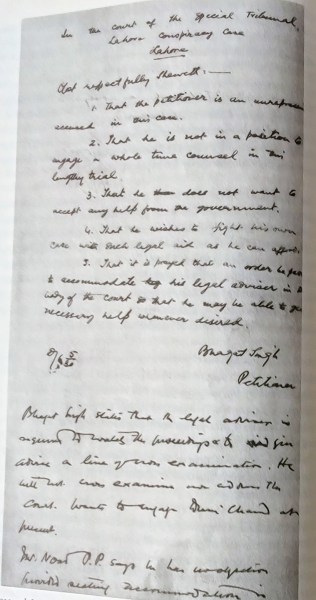 In the court of the Special Tribunal,
Lahore Conspiracy Case
Lahore
Most respectfully sheweth:—
1. That the petitioner is an
accused in this case.
2. That he is not in a position to
engage a whole time counsel in this
lengthy trial.
3. That he does not want to
accept any help from the government.
4. That he wishes to fight his own
case with such legal aid as he can
5. That it is prayed that an order be
to accommodate his legal adviser in the
of the court so that he may be able to
necessary help whenever desired.
Bhagat Singh
Petitioner
Bhagat Singh states that the legal adviser is
required to watch the proceedings & to give
advice a line of cross examination. He
will not cross examine nor address the
Court. Wants to engage Duni Chand at
present.
Mr. Noad P.P. says he has no objection
provided seating accommodation is